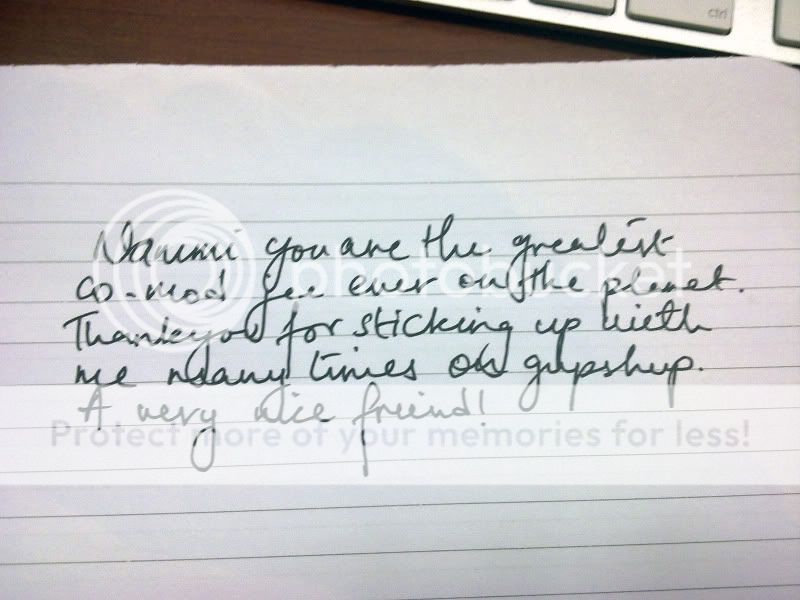 ctrl
you are the greatest
co-mod jee ever on the planet.
Thankyou for sticking up with
me many times on gupshup.
A very nice friend!
photobucket
Protect more of your memories for less!